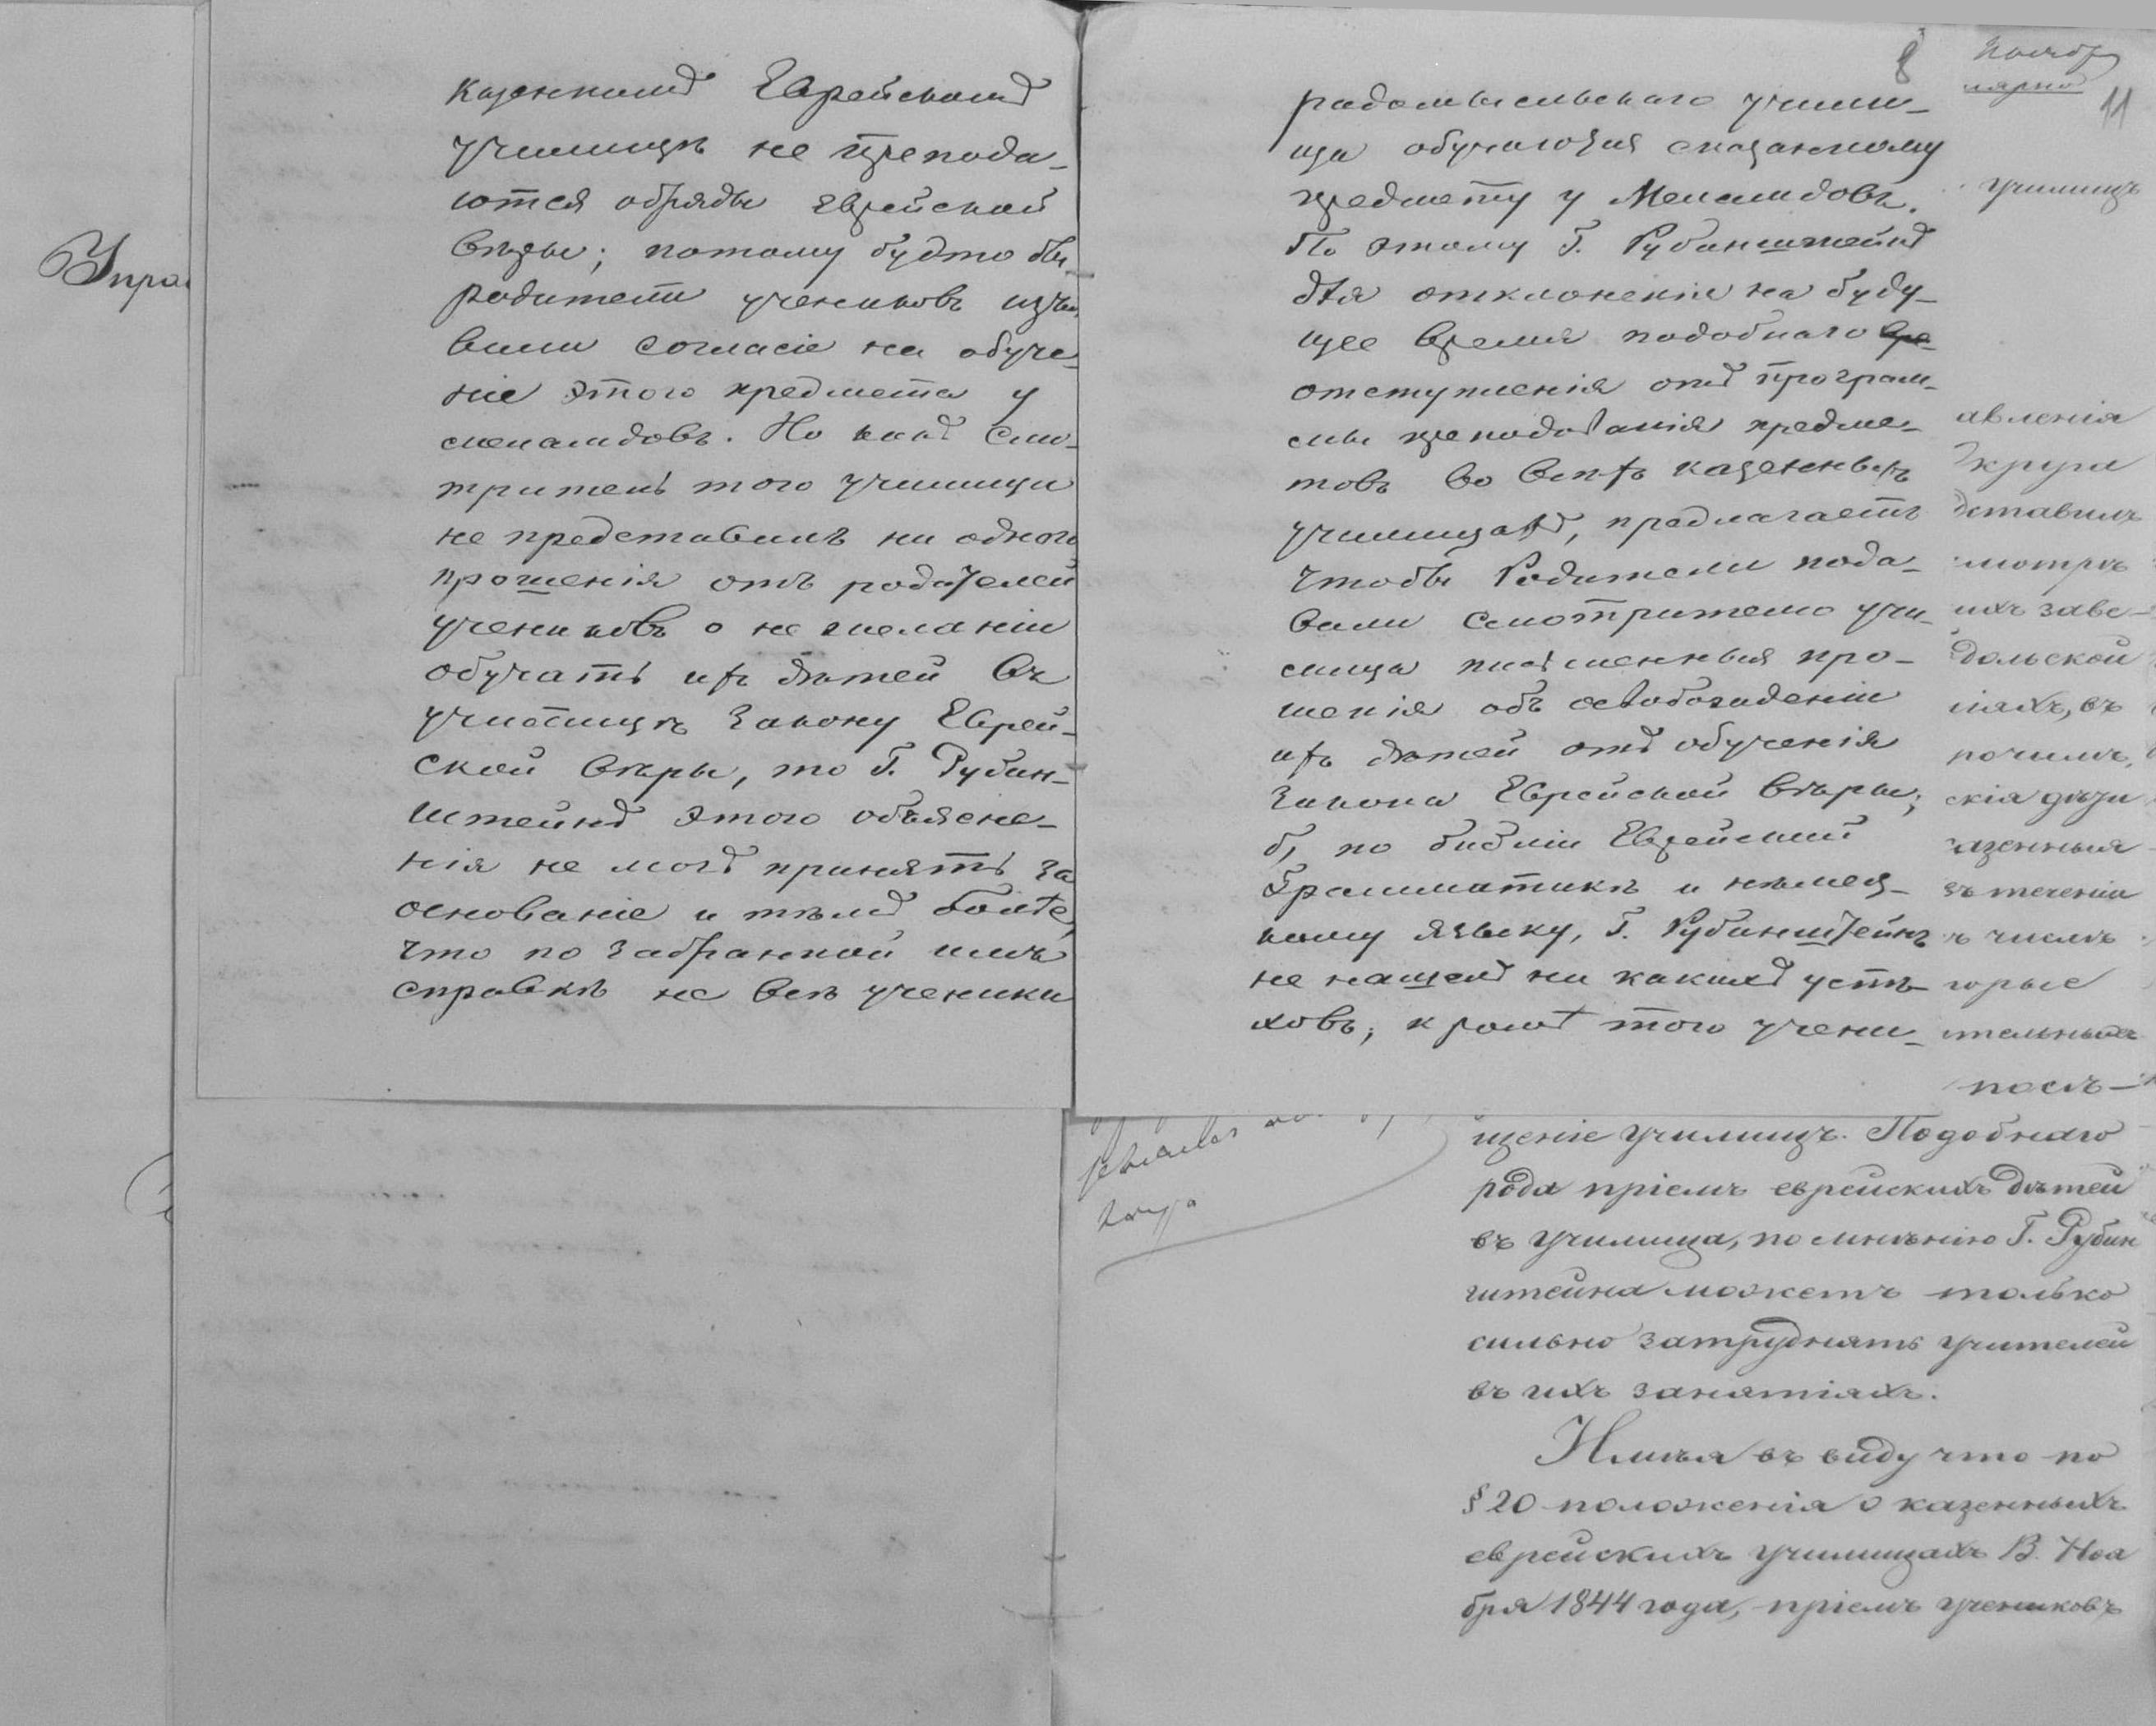 казенномъ Еврейскомъ
училищѣ не препода-
ются обряды Еврейской
вѣры; потому будто бы
родители учениковъ изъя
вили согласіе на обуче-
ніе этого предмета у
меламдовъ. Но какъ Смо-
тритель того училища
не представилъ ни одного
прошенія отъ родителей
учениковъ о не желаніи
обучать ихъ дѣтей въ
училищѣ Закону Еврей-
ской вѣры, то Г. Рубин-
штейнъ этого объясне-
нія не могъ принять за
основаніе и тѣмъ болѣе,
что по забранной имъ
справкѣ не всѣ ученики
Упра
8
11
радомысльскаго учили-
ща обучаются сказанному
предмету у Меламдовъ.
По этому Г. Рубинштейнъ
для отклоненія на буду-
щее время подобнаго вре-
отступленія отъ програм-
мы преподаванія предме-
товъ во всѣхъ казенныхъ
училищахъ, предлагаетъ
чтобы Родители пода-
вали Смотрителю учи-
лища письменныя про-
шенія объ освобожденіи
ихъ дѣтей отъ обученія
Закона Еврейской вѣры;
б, по библіи Еврейской
Грамматикѣ и нѣмец-
кому языку, Г. Рубинштейнъ
не нашелъ ни какихъ успѣ-
ховъ; кромѣ того учени-
училищъ
авленія
Округа
дставилъ
смотръ
ихъ заве-
дольской
ніяхъ, въ
рочимъ,
скія дѣти
азенныя
въ теченіи
ъ числѣ
торые
ительныхъ
посѣ-
щеніе училищъ. Подобнаго
рода пріемъ еврейскихъ дѣтей
въ училища, по мнѣнію Г. Рубин
штейна можетъ только
сильно затруднять учителей
въ ихъ занятіяхъ.
Имѣя въ виду что по
§ 20 положенія о казенныхъ
еврейскихъ училищахъ 13. Ноя
бря 1844 года, пріемъ учениковъ